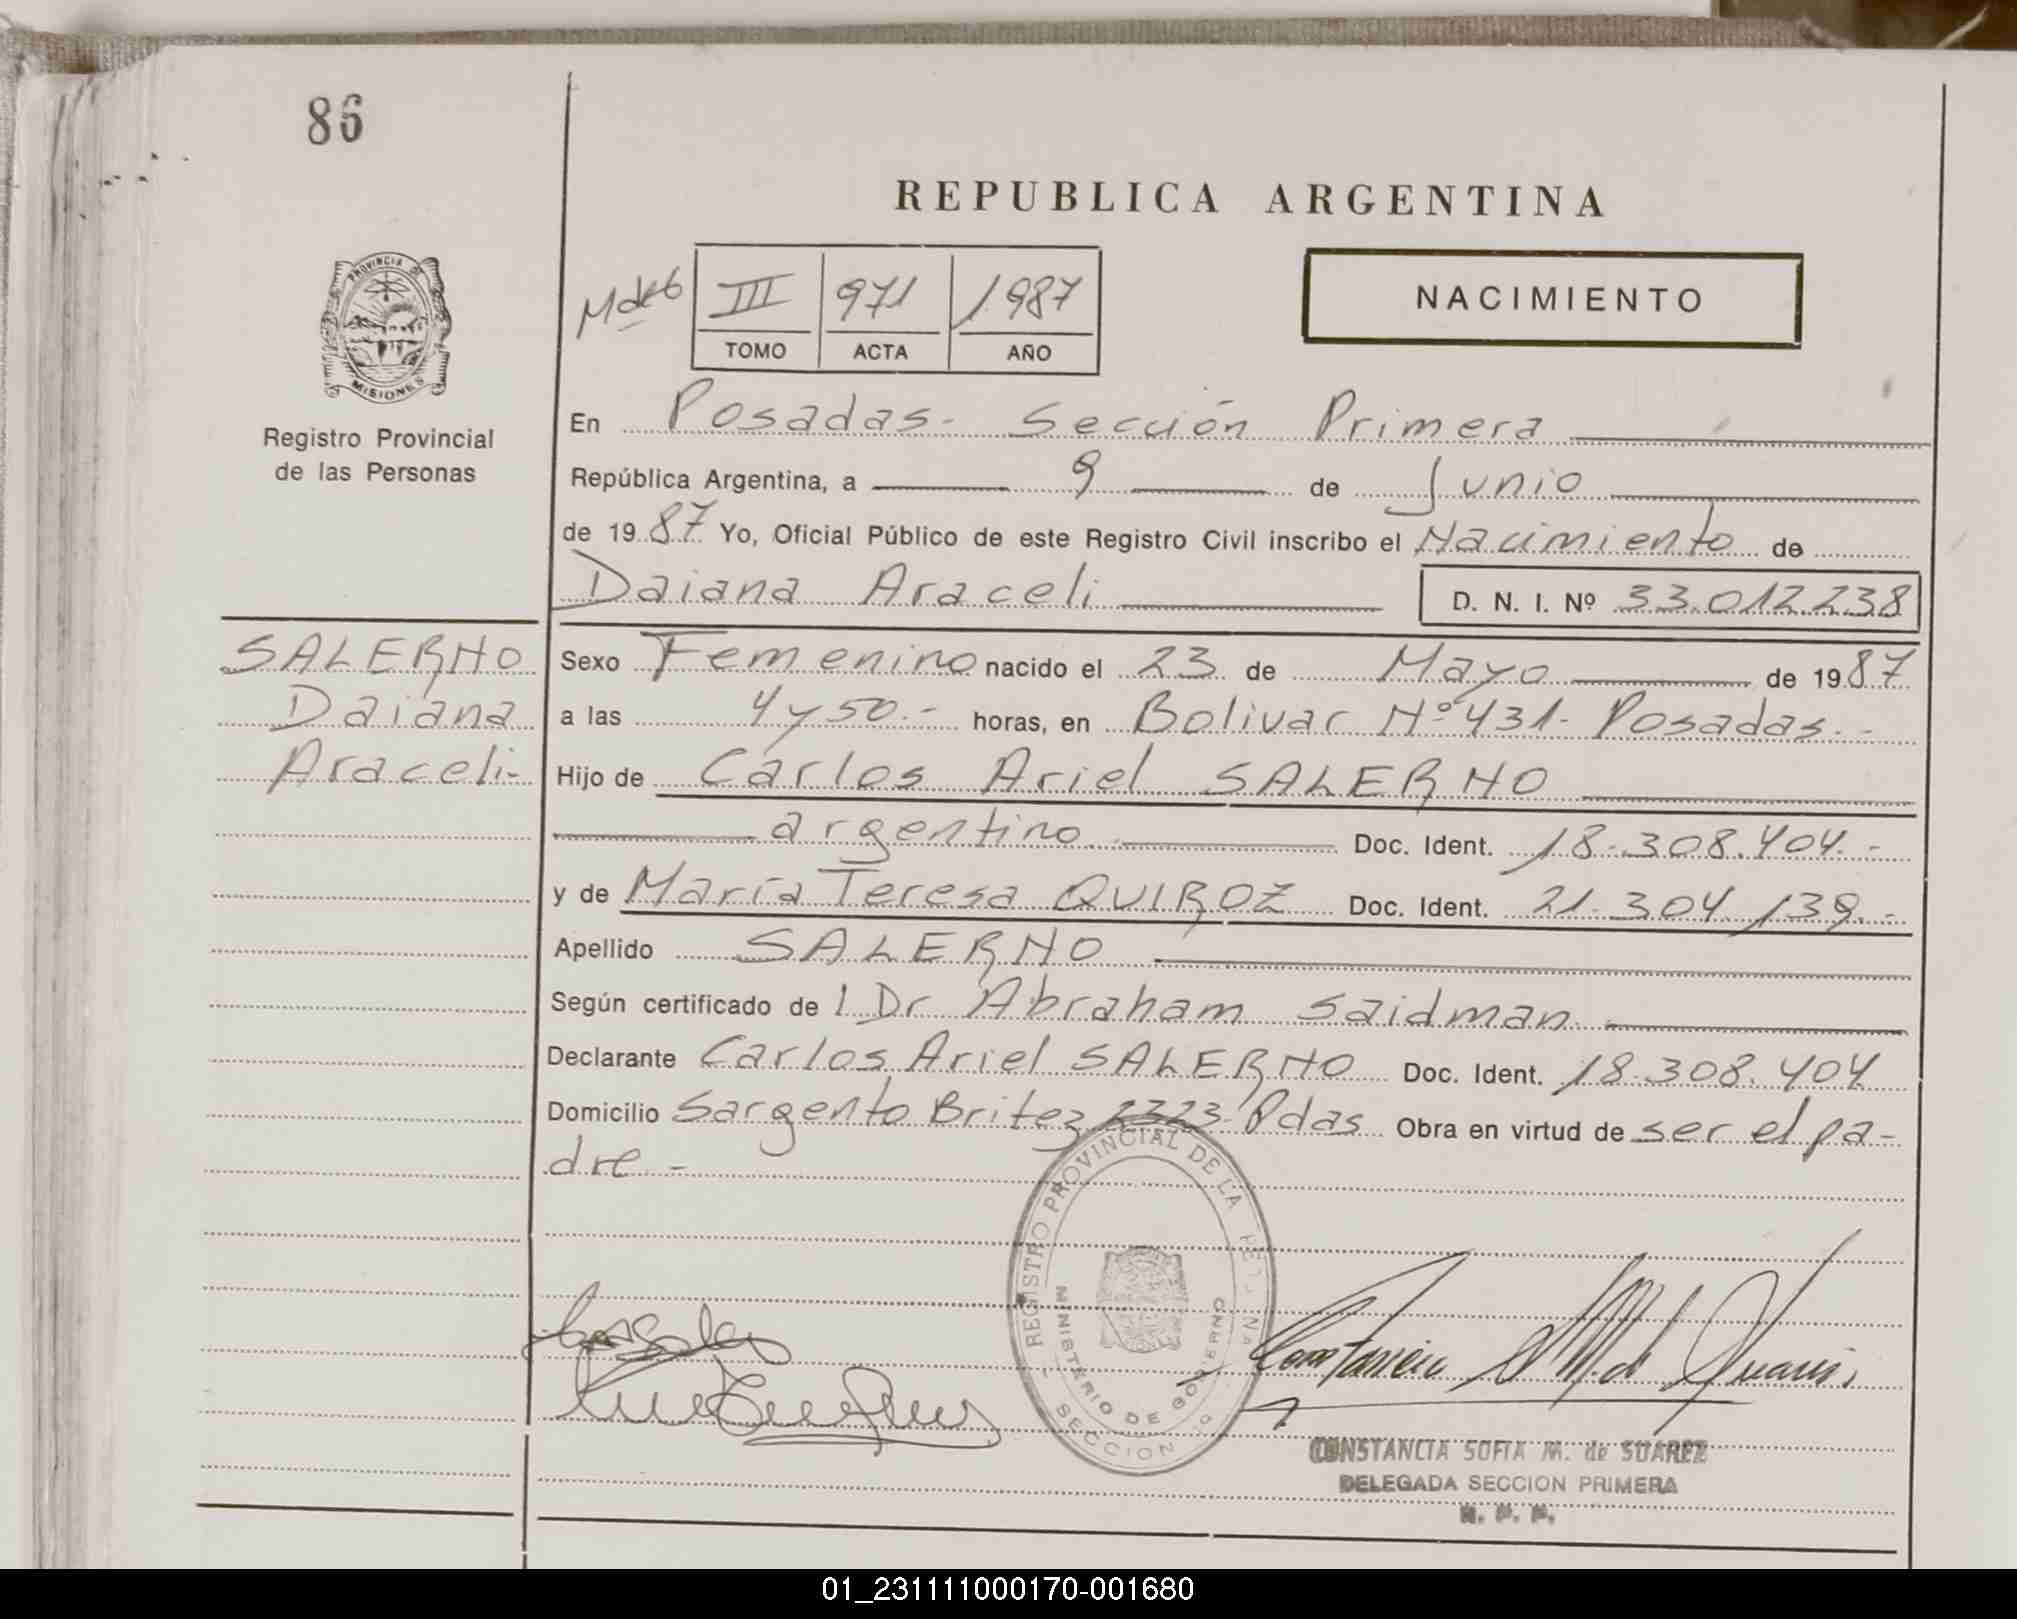 86
REPUBLICA ARGENTINA
PROVINCIA DE
MISIONES
Registro Provincial
de las Personas
III 971 1987
TOMO ACTA AÑO
NACIMIENTO
En Posadas.- Sección Primera
República Argentina, a 9 de Junio
de 1987 Yo, Oficial Público de este Registro Civil inscribo el Nacimiento de
Daiana Araceli D. N. I. Nº 33.012.238
SALERNO
Daiana
Araceli.-
Sexo Femenino nacido el 23 de Mayo de 1987
a las 4 y 50.- horas, en Bolivar Nº 431- Posadas.-
Hijo de Carlos Ariel SALERNO
argentino Doc. Ident. 18.308.404.-
y de María Teresa QUIROZ Doc. Ident. 21.304.139.-
Apellido SALERNO
Según certificado de l Dr Abraham Saidman
Declarante Carlos Ariel SALERNO Doc. Ident. 18.308.404
Domicilio Sargento Britez 2323 Pdas Obra en virtud de ser el pa-
dre.-
REGISTRO PROVINCIAL DE LA
MINISTERIO DE GOBIERNO
SECCION
CONSTANCIA SOFIA M. de SUAREZ
DELEGADA SECCION PRIMERA
R. P. P.
01_231111000170-001680